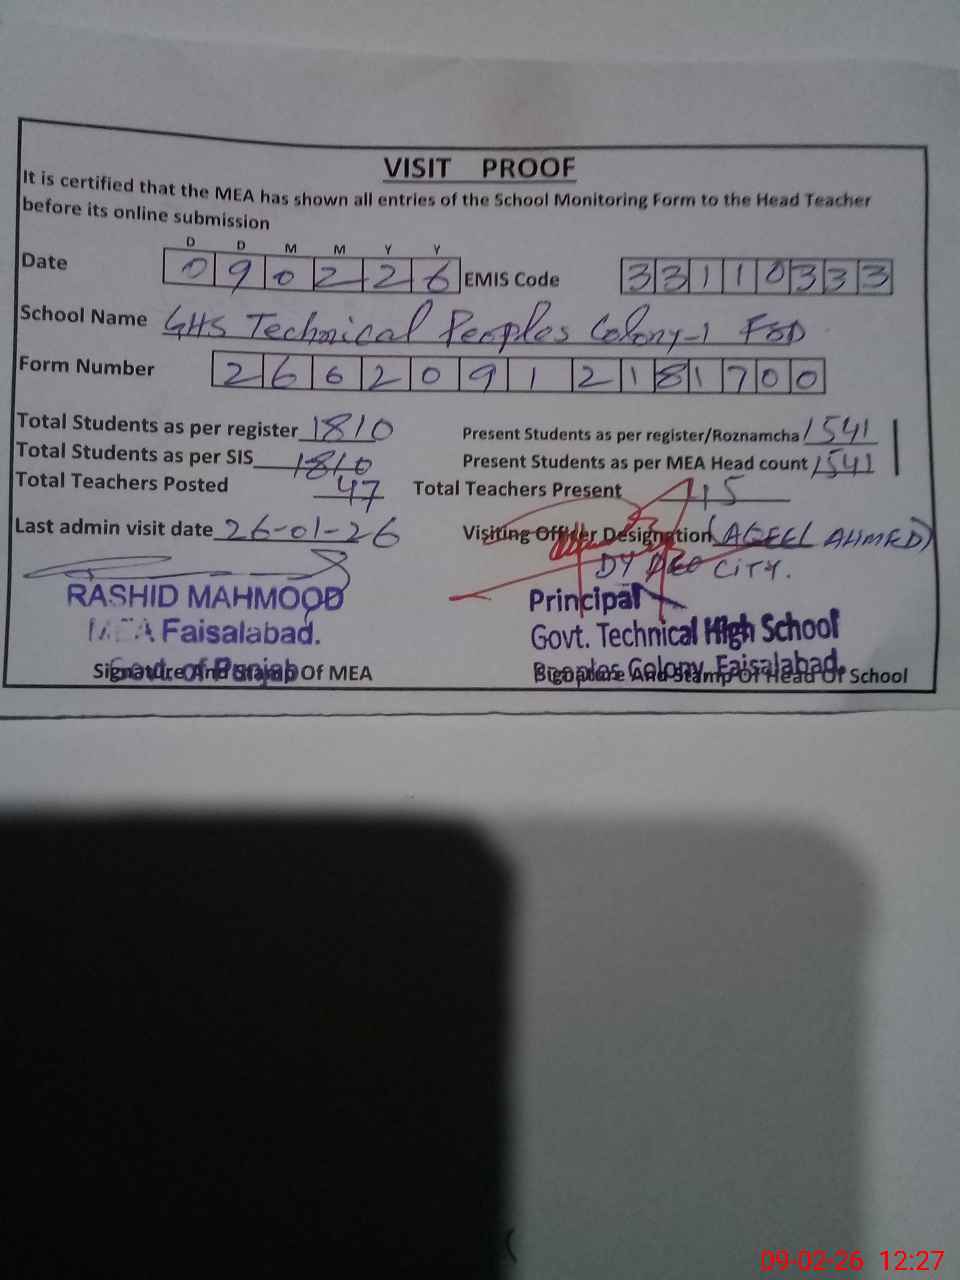 VISIT PROOF
It is certified that the MEA has shown all entries of the School Monitoring Form to the Head Teacher
before its online submission
D D M M Y Y
Date 0 9 0 2 2 6 EMIS Code 3 3 1 1 0 3 3 3
School Name GHS Technical Peoples Colony-1 FSD
Form Number 2 6 6 2 0 9 1 2 1 8 1 7 0 0
Total Students as per register 1810 Present Students as per register/Roznamcha 1541
Total Students as per SIS 1810 Present Students as per MEA Head count 1541
Total Teachers Posted 47 Total Teachers Present
Last admin visit date 26-01-26 Visiting Officer Designation (AQEEL AHMED)
DY DEO CITY.
RASHID MAHMOOD Principal
MEA Faisalabad. Govt. Technical High School
Govt. of Punjab Peoples Colony, Faisalabad.
Signature And Stamp Of MEA Signature And Stamp Of Head Of School
09-02-26 12:27